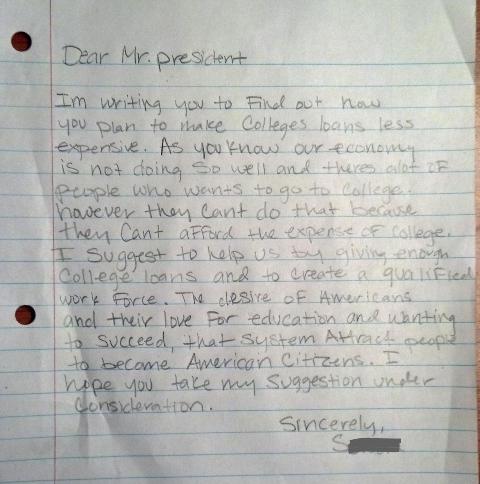 Dear Mr. president
Im writing you to Find out how
you plan to make Colleges loans less
expensive. As you know our economy
is not doing so well and theres alot of
people who wants to go to College.
however they Cant do that because
they Cant afford the expense of College.
I suggest to help us by giving enough
College loans and to create a qualified
work force. The desire of Americans
and their love for education and wanting
to succeed, that system Attract people
to become American Citizens. I
hope you take my suggestion under
Consideration.
Sincerely,
S